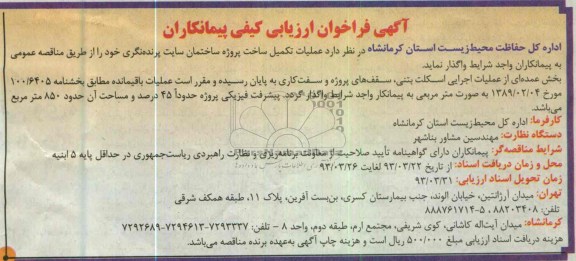 آگهی فراخوان ارزیابی کیفی پیمانکاران
اداره کل حفاظت محیط‌زیست استان کرمانشاه در نظر دارد عملیات تکمیل ساخت پروژه ساختمان سایت پرنده‌نگری خود را از طریق مناقصه عمومی
به پیمانکاران واجد شرایط واگذار نماید.
بخش عمده‌ای از عملیات اجرایی اسکلت بتنی، سقف‌های پروژه و سفت‌کاری به پایان رسیده و مقرر است عملیات باقیمانده مطابق بخشنامه ۱۰۰/۶۴۰۵
مورخ ۱۳۸۹/۰۲/۰۴ به صورت متر مربعی به پیمانکار واجد شرایط واگذار گردد. پیشرفت فیزیکی پروژه حدوداً ۴۵ درصد و مساحت آن حدود ۸۵۰ متر مربع
می‌باشد.
کارفرما: اداره کل محیط‌زیست استان کرمانشاه
دستگاه نظارت: مهندسین مشاور بناشهر
شرایط مناقصه‌گر: پیمانکاران دارای گواهینامه تأیید صلاحیت از معاونت برنامه‌ریزی و نظارت راهبردی ریاست‌جمهوری در حداقل پایه ۵ ابنیه
محل و زمان دریافت اسناد: از تاریخ ۹۳/۰۳/۲۲ لغایت ۹۳/۰۳/۲۶
زمان تحویل اسناد ارزیابی: ۹۳/۰۳/۳۱
تهران: میدان آرژانتین، خیابان الوند، جنب بیمارستان کسری، بن‌بست آفرین، پلاک ۱۱، طبقه همکف شرقی
تلفن: ۸۸۲۰۳۴۰۸ ـ ۵-۸۸۸۷۶۱۷۱۴
کرمانشاه: میدان آیت‌اله کاشانی، کوی شریفی، مجتمع ارم، طبقه دوم، واحد ۸ - تلفن: ۷۲۹۳۳۳۷-۷۲۹۴۶۱۳-۷۲۹۲۶۸۹
هزینه دریافت اسناد ارزیابی مبلغ ۵۰۰/۰۰۰ ریال است و هزینه چاپ آگهی به‌عهده برنده مناقصه می‌باشد.